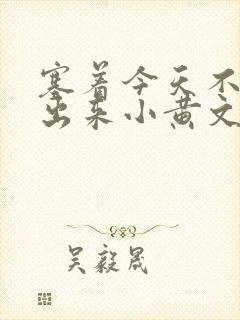 塞着今天不
出来小黄文
吴毅晟